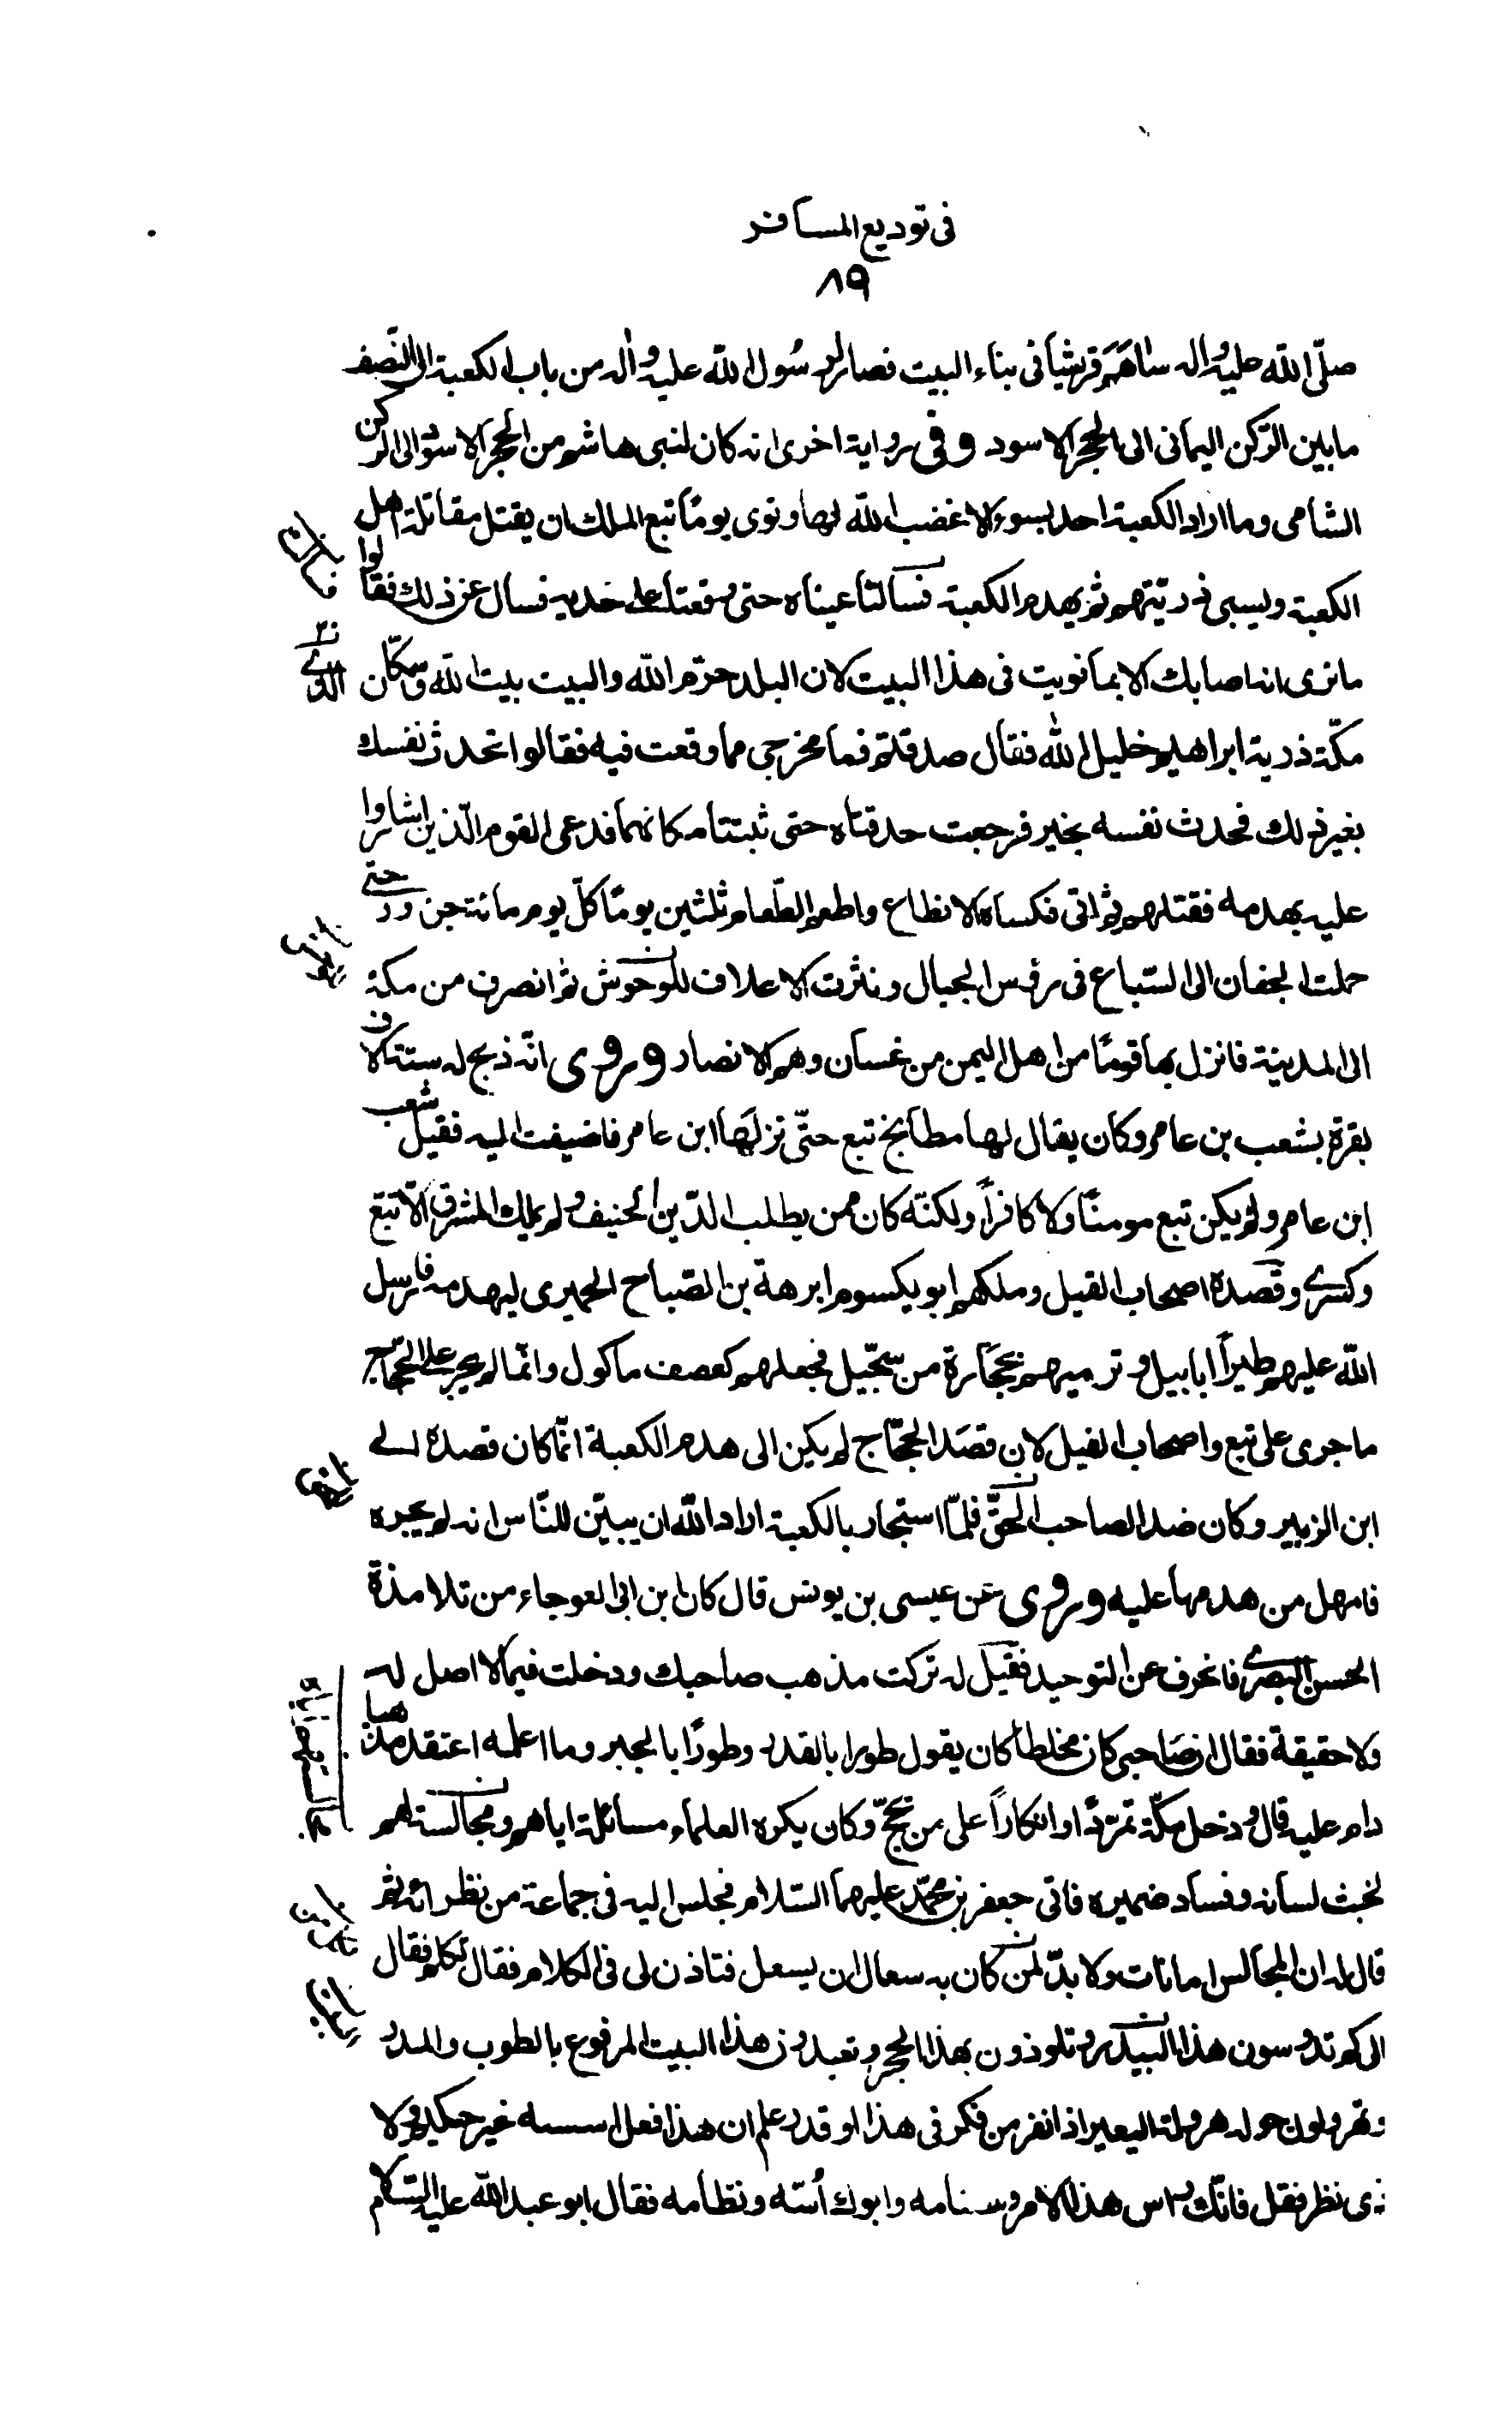 فى توديع المسافر
٨٩
صلّى الله عليه واله ساهَمَ قريشًا فى بناء البيت فصار لرسُول الله عليه واله من باب الكعبة الى النّصف
ما بين الرّكن اليمانى الى الحجر الاسود وفى رواية اخرى انه كان لبنى هاشم من الحجر الاسود الى الركن
الشامى وما اراد الكعبة احد بسوء الا غضب الله لها ونوى يومًا تبع الملك ان يقتل مقاتلة اهل
الكعبة ويسبى ذريّتهم ثم يهدم الكعبة فسالتا عيناه حتى وقعتا على خديه فسال عن ذلك فقالوا
ما نرى انه اصابك الا بما نويت فى هذا البيت لان البلد حرم الله والبيت بيت الله وسكّان
مكّة ذرية ابراهيم خليل الله فقال صدقتم فما مخرجى مما وقعت فيه فقالوا تحدث نفسك
بغير ذلك فحدث نفسه بخير فرجعت حدقتاه حتى ثبتتا مكانهما فدعى القوم الّذين اشاروا
عليه بهدمه فقتلهم ثم اتى فكساه الانطاع واطعم الطّعام ثلثين يومًا كلّ يوم مائة جزور حتى
حملت الجفان الى السّباع فى رؤس الجبال ونثرت الاعلاف للوحوش ثم انصرف من مكة
الى المدينة فانزل بها قومًا من اهل اليمن من غسان وهم الانصار وروى انّه ذبح له ستة الاف
بقرة بشعب بن عامر وكان يقال لها مطابخ تبع حتّى نزلَها ابن عامر فاضيفت اليه فقيل شعب
ابن عامر ولم يكن تبع مومنًا ولا كافراً ولكنّه كان ممن يطلب الدّين الحنيف ولم يملك المشرق الّا تبع
وكسرى وقصده اصحاب الفيل وملكهم ابو يكسوم ابرهة بن الصّباح الحميرى ليهدمه فارسل
الله عليهم طيراً ابابيل ترميهم بحجَارة من سجّيل فجعلهم كعصف ماكول وانّما لم يجر على الحجّاج
ما جرى على تبع واصحاب الفيل لان قصَد الحجّاج لم يكن الى هدم الكعبة انّما كان قصده الى
ابن الزبير وكان ضدا لصاحب الحقّ فلمّا استجار بالكعبة اراد الله ان يبيّن للنّاس انه لم يجره
فامهل من هدمها عليه وروى عن عيسى بن يونس قال كان ابن ابى العوجاء من تلامذة
الحسن البصرى فانحرف عن التوحيد فقيل له تركت مذهب صاحبك ودخلت فيما لا اصل له
ولا حقيقة فقال ان صَاحبى كان مخلطا كان يقول طورا بالقدر وطورًا بالجبر وما اعلمه اعتقد مذهبا
دام عليه قال ودخل مكّة تمرّدًا وانكاراً على من يحجّ وكان يكره العلماء مسائلة اياهم ومجالسته لهم
لخبث لسانه وفساد ضميره فاتى جعفر بن محمّد عليهما السّلام فجلس اليه فى جماعة من نظرائه ثم
قال له ان المجالس امانات ولا بدّ لمن كان به سعال ان يسعل فتاذن لى فى الكلام فقال تكلم فقال
الى كم تدوسون هذا البيدر وتلوذون بهذا الحجر وتعبدون هذا البيت المرفوع بالطوب والمدر
وتهرولون حوله هرولة البعير اذا نفر من فكر فى هذا او قدر علم ان هذا فعل اسسه غير حكيم ولا
ذى نظر فقل فانّك راس هذا الامر وسنامه وابوك اُسّه ونظامه فقال ابو عبد الله عليه السّلام